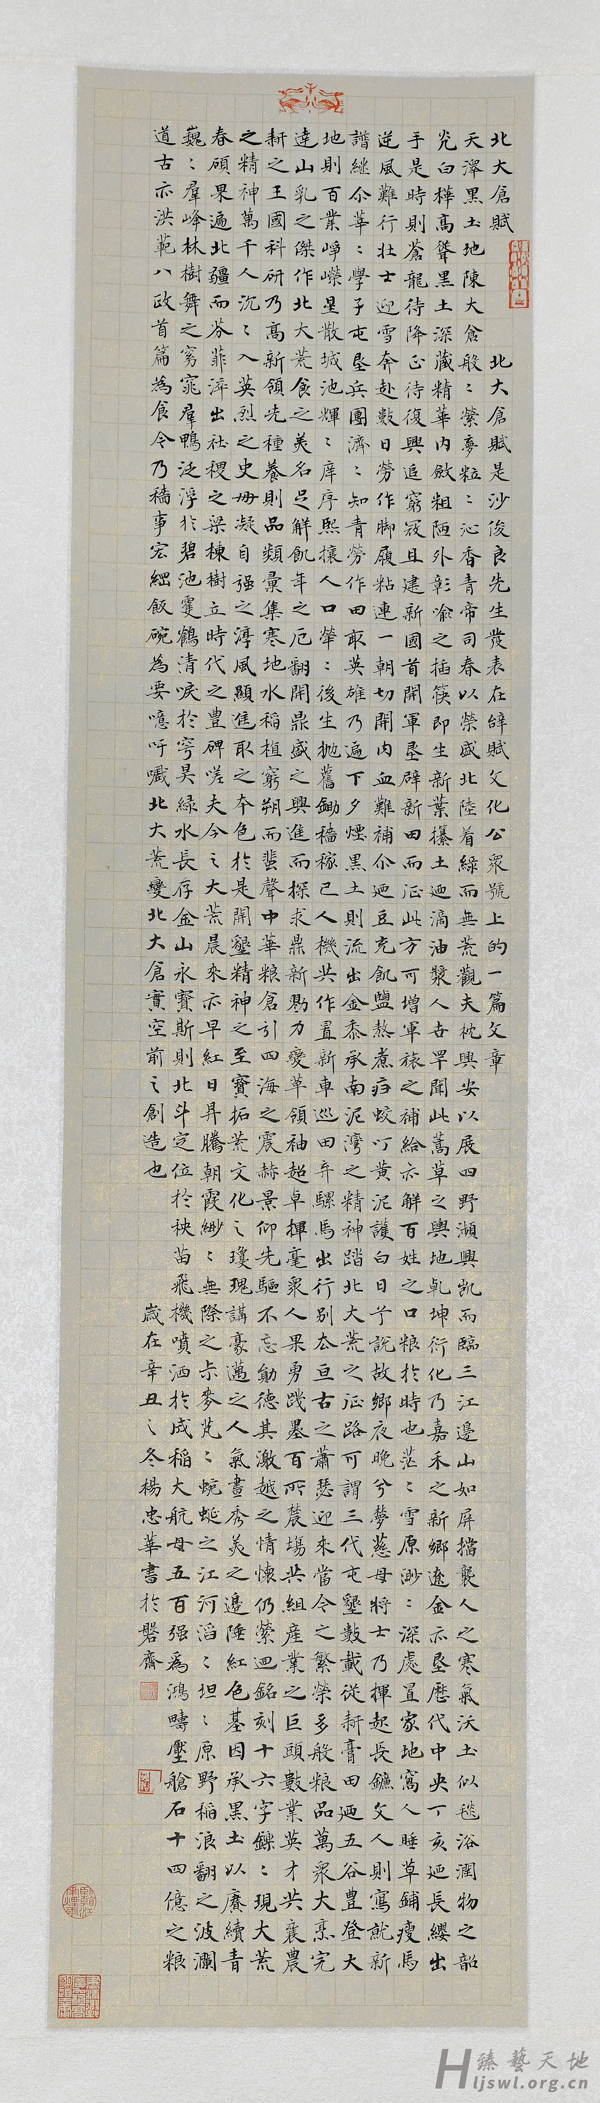 北大倉賦　北大倉賦是沙俊良先生發表在辭賦文化公衆號上的一篇文章
天澤黑土地陳大倉般〻縈夢粒〻沁香青帝司春以榮盛北陸着綠而無荒觀夫枕興安以展四野瀕興凱而臨三江邊山如屏擋襲人之寒氣沃土似毯浴潤物之韶
光白樺高聳黑土深藏精華内斂粗陋外彰喻之插筷即生新葉攥土迺滴油漿人吝罕聞此蒿草之輿地乾坤衍化乃嘉禾之新鄉遼金亦墾歷代中央丁亥迺長纓出
手是時則蒼龍待降正待復興追窮寇且建新國首開軍墾辟新田而征此方可增軍旅之補給亦解百姓之口粮於時也茫〻雪原渺〻深處置家地窩人睡草鋪瘦馬
逆風難行壯士迎雪奔赴數日勞作脚履粘連一朝切開肉血難補尒迺豆充飢鹽熬煮疥蛟叮黄泥護白日兮說故鄉夜晚兮夢慈母將士乃揮起長鐮文人則寫就新
譜繼尒華〻學子屯墾兵團濟〻知青勞作田畝英雄乃遍下夕煙黑土則流出金黍承南泥灣之精神踏北大荒之征路可謂三代屯墾數載從新膏田迺五谷豊登大
地則百業崢嶸星散城池輝〻庠序熙攘人口犖〻後生抛舊鋤穡稼已人機共作置新車巡田弃騾馬出行別太亘古之蕭瑟迎來當令之繁榮多般粮品萬衆大烹完
達山乳之傑作北大荒食之美名足解飢年之厄翻開鼎盛之興進而探求鼎新勠力變革領袖超卓揮毫衆人果勇踐墨百所農場共組産業之巨頭數業英才共襄農
新之王國科研乃高新領先種養則品類彙集寒地水稻植窮朔而蜚聲中華粮倉引四海之震赫景仰先驅不忘勛德其激越之情懷仍縈迴銘刻十六字鏗〻現大荒
之精神萬千人沉〻入英烈之史册凝自强之淳風顯進取之本色於是開墾精神之至寶拓荒文化之瓊瑰講豪邁之人氣畫秀美之邊陲紅色基因承黑土以賡續青
春碩果遍北疆而芬菲淬出社稷之梁棟樹立時代之豊碑嗟夫今之大荒晨來亦早紅日昇騰朝霞緲〻無際之尗麥芃〻蜿蜒之江河滔〻坦〻原野稻浪翻之波瀾
巍〻羣峰林樹舞之窈窕羣鴨泛浮於碧池䨥鶴清唳於穹昊綠水長存金山永賽斯則北斗定位於秧苗飛機噴洒於成稻大航母五百强爲鴻疇壓艙石十四億之粮
道古亦洪範八政首篇爲食今乃穡事宏綱飯碗爲要噫吁嚱北大荒變北大倉實空前之創造也　歲在辛丑之冬楊忠華書於磐齋
臻藝天地
Hljswl.org.cn